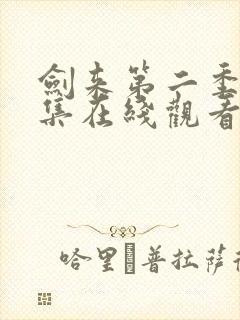 劍来第二季
集在綫觀看
哈里�普拉薩